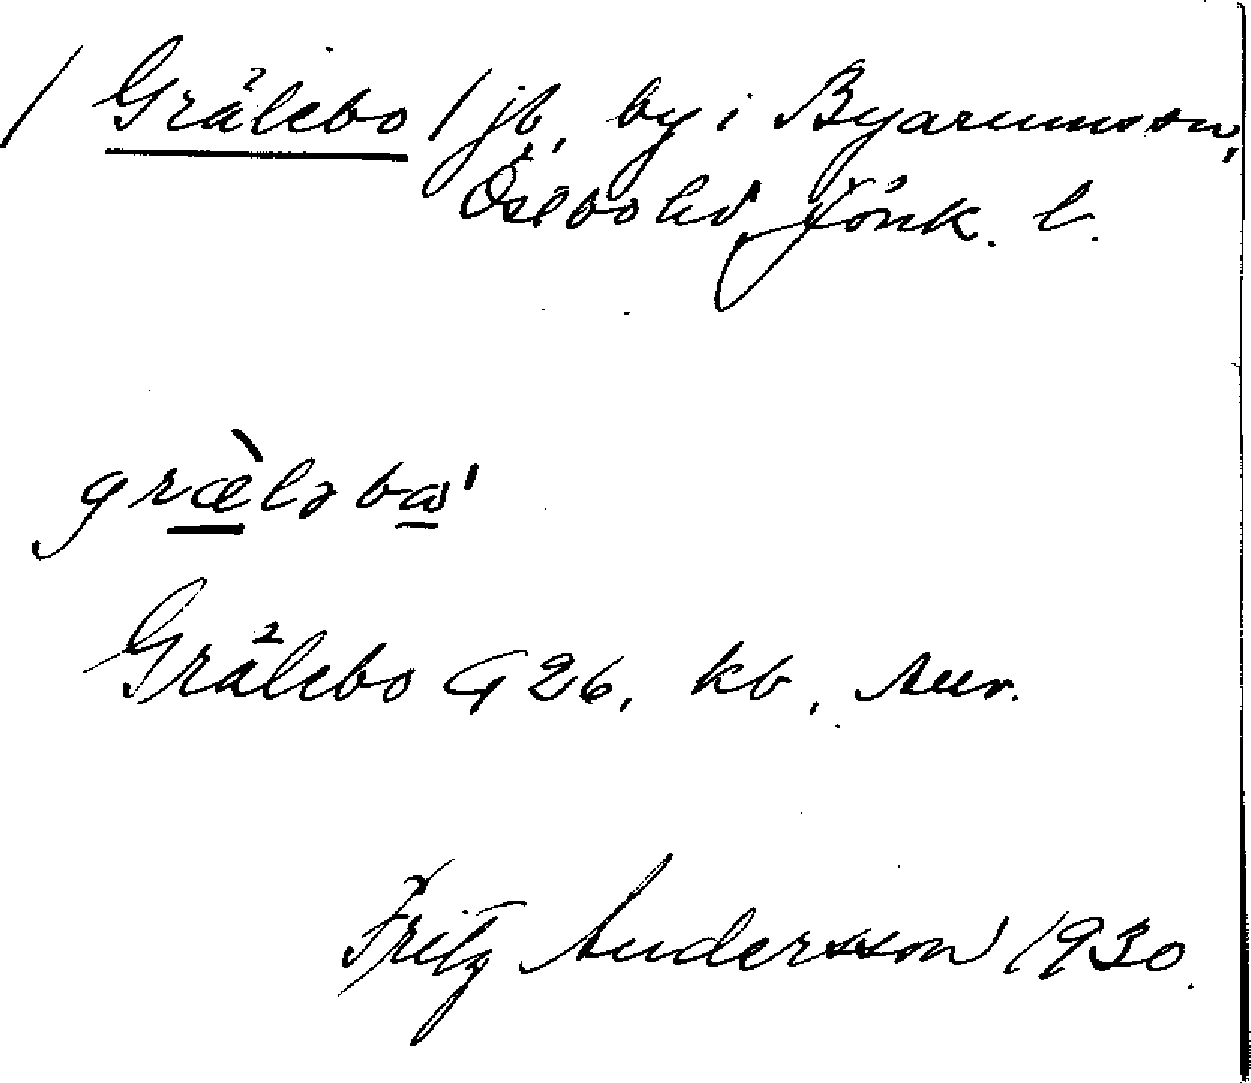 / Grälebo / jb, by i Byarums sn,
Östbo hd, Jönk. l.
græ̀ləbω'
Grälebo G 26, kb,
Fritz Andersson 1930.